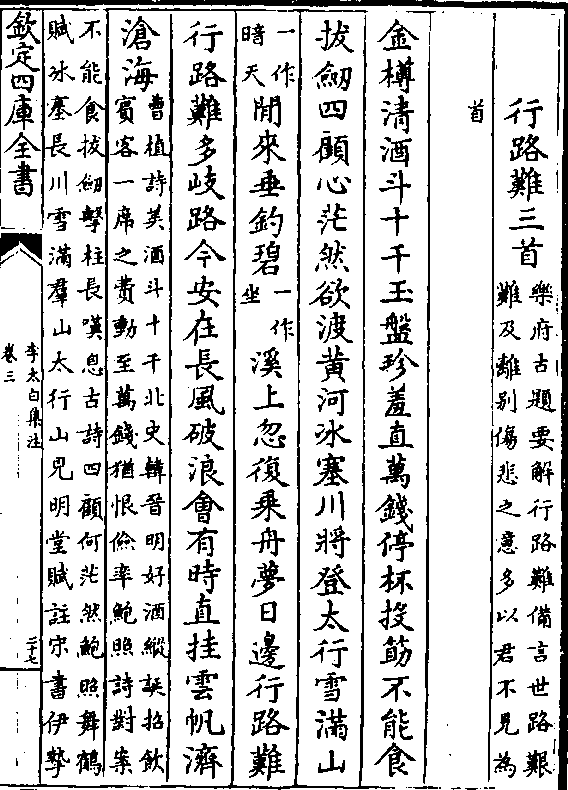 行路難三首
樂府古題要解行路難備言世路艱
難及離別傷悲之意多以君不見為
首
金樽清酒斗十千玉盤珍羞直萬錢停杯投筯不能食
拔劒四顧心茫然欲渡黃河冰塞川將登太行雪滿山
一作
暗天
閒來垂釣碧
一作
坐
溪上忽復乗舟夢日邊行路難
行路難多歧路今安在長風破浪會有時直挂雲帆濟
滄海
曹植詩美酒斗十千北史韓晉明好酒縱誕招飲
賓客一席之費動至萬錢猶恨儉率鮑照詩對案
不能食拔劒擊柱長嘆息古詩四顧何茫然鮑照舞鶴
賦冰塞長川雪滿羣山太行山見明堂賦註宋書伊摯
欽定四庫全書
李太白集注
卷三
二十七